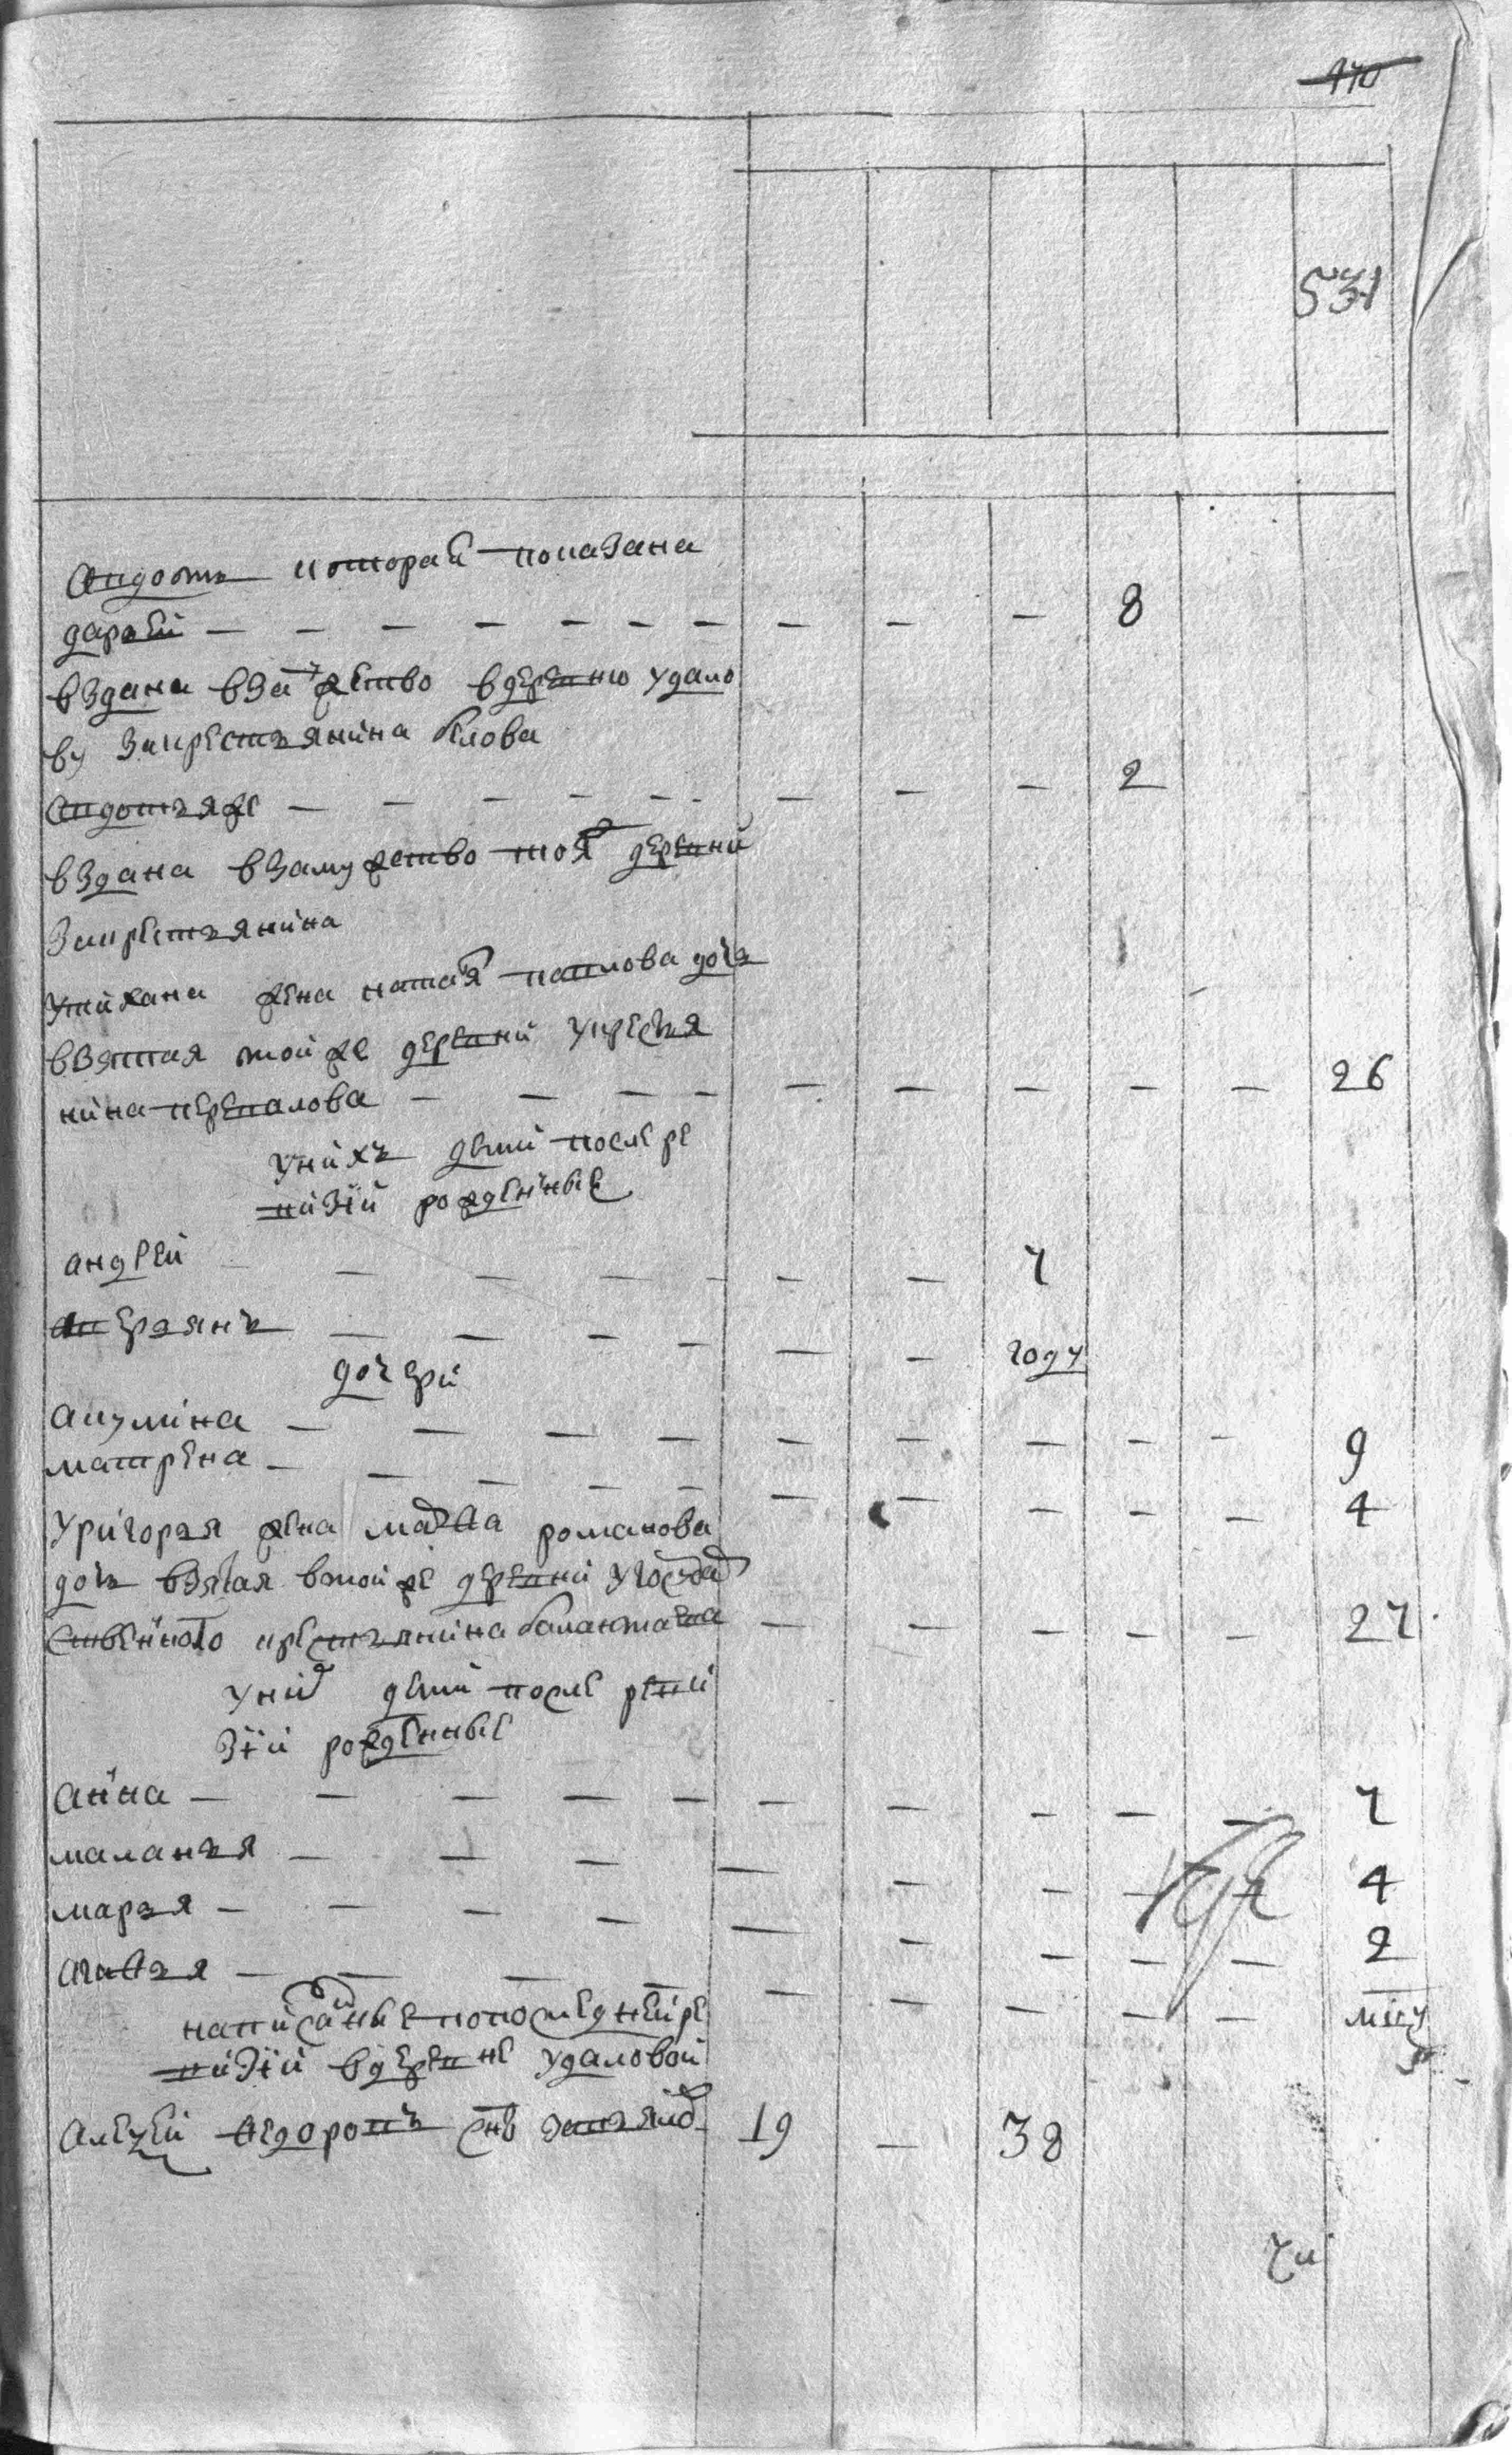 170
531
Авдотья которая показана
дарьей — — — — — — — — — — 8
вздана взамужство вдеревню удало
ву закрестьянина белова
Авдотья же — — — — — — — — 2
вздана взамужство тоя деревни
закрестьянина
Утихана жена катая павлова дочь
взятая той же деревни укрестья
нина перевалова — — — — — — — — — 26
Унихъ детей после ре
визии рожденные
андрей — — — — — — 7
аверьянъ — — — — — — году
дочери
акулина — — — — — — — — — 9
матрена — — — — — — — — — — 4
Уригорья жена марфа романова
дочь взятая втой же деревни угосуда
ственного крестьянина балакта — — — — — 27
Уних детей после реви
зии рожденные
анна — — — — — — — — — — 7
маланья — — — — — — — 4
марья — — — — — — — — — 2
агафья — — — — — — — — месяцу
написанные попоследней ре
визии вдеревне удаловой
Алексей федоровъ снъ завьялов 19 — 38